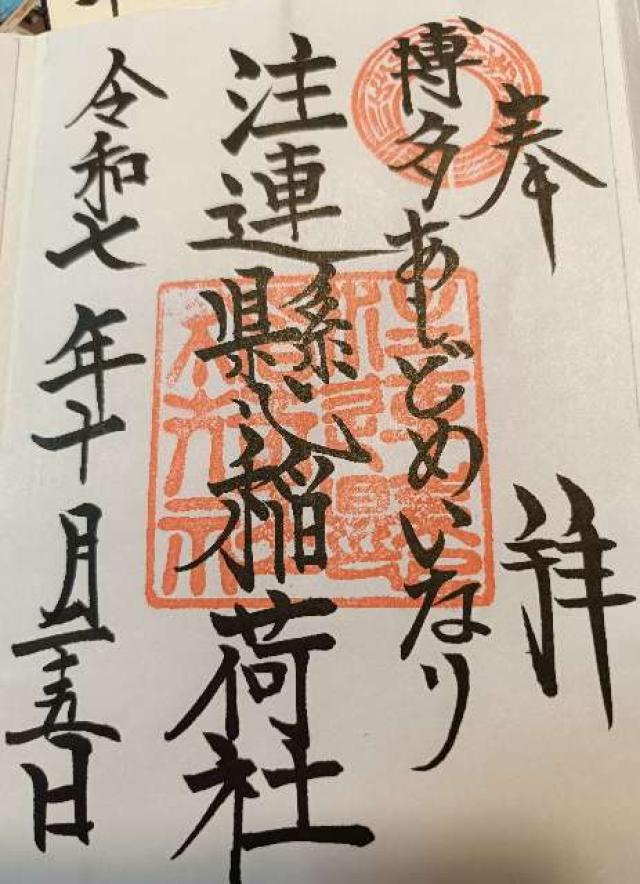 奉拝
博多あしどめいなり
注連懸稲荷社
令和七年十月二十五日